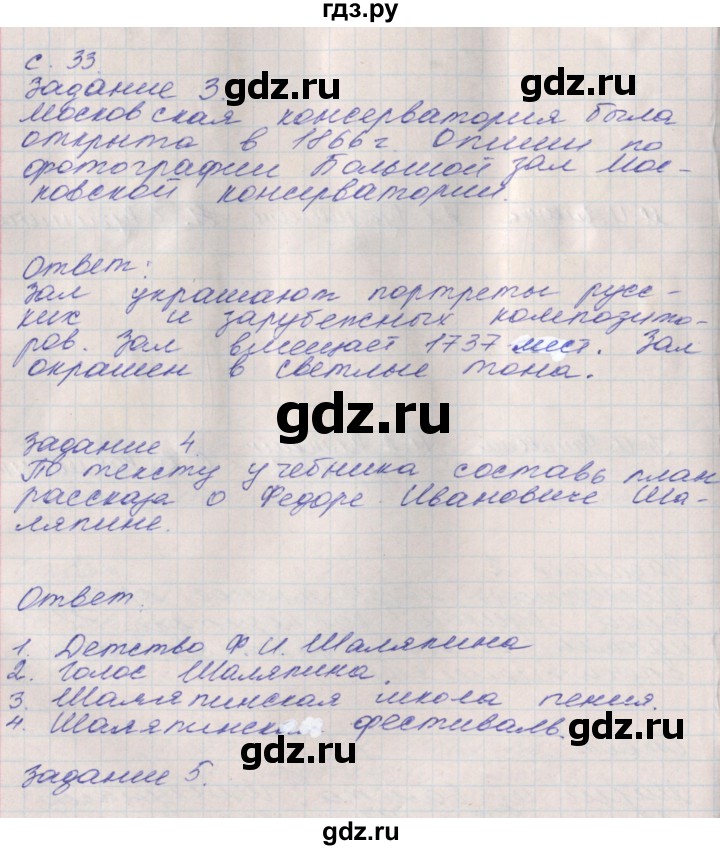 гдз.ру
с. 33.
gdz.ru
gdz.ru
Задание 3.
Московская консерватория была
открыта в 1866 г. Опиши по
фотографии Большой зал Мос-
ковской консерватории.
gdz.ru
gdz.ru
Ответ:
Зал украшают портреты русс-
ких и зарубежных композито-
ров. Зал вмещает 1737 мест. Зал
окрашен в светлые тона.
gdz.ru
Задание 4.
По тексту учебника составь план
рассказа о Федоре Ивановиче Ша-
ляпине.
Ответ:
1. Детство Ф.И. Шаляпина
2. Голос Шаляпина.
3. Шаляпинская школа пения.
4. Шаляпинский фестиваль.
gdz.ru
gdz.ru
Задание 5.
gdz.ru